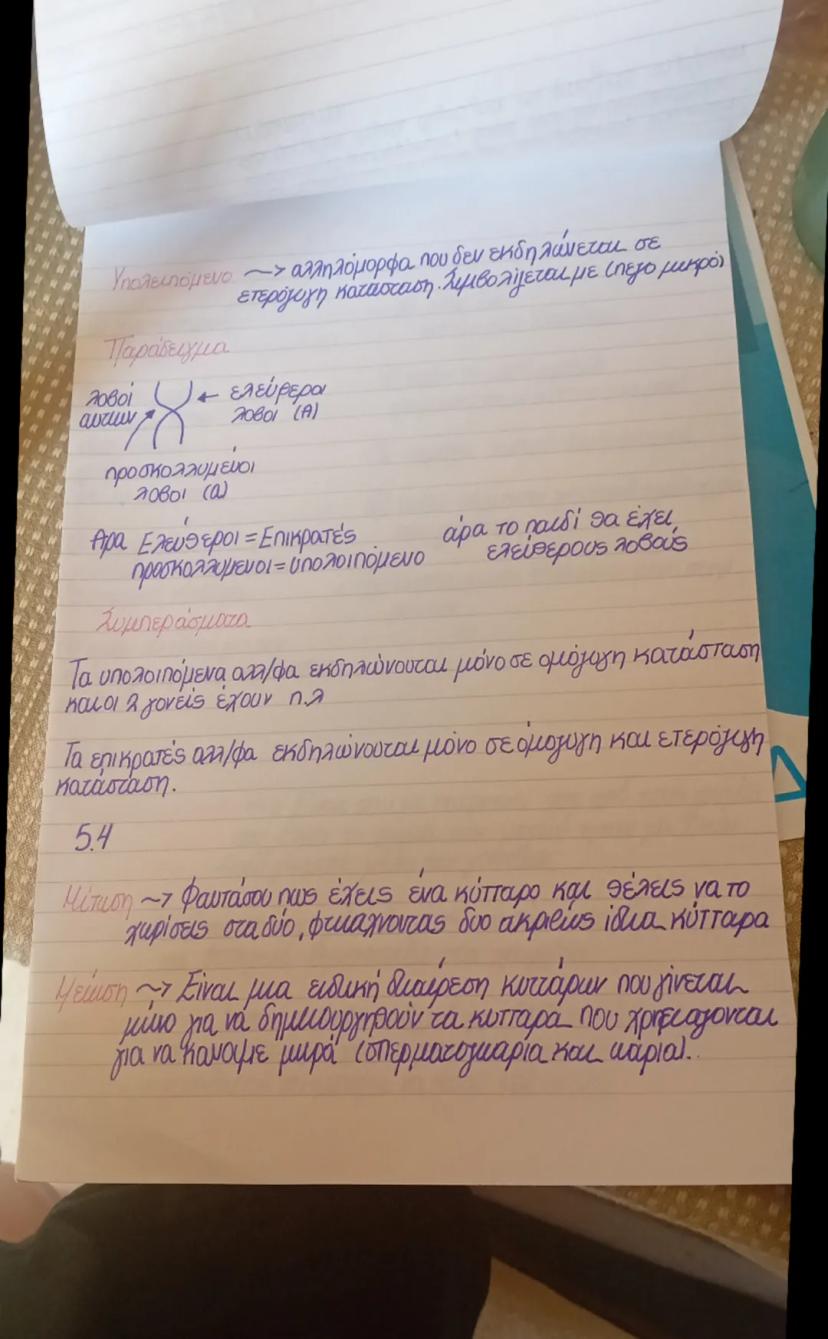 Υπολειπόμενο ~> αλληλόμορφα που δεν εκδηλώνεται σε
ετερόζυγη κατάσταση. Συμβολίζεται με (πεζο μικρό)
Παράδειγμα
λοβοί
αυτιων
← ελεύθεροι
λοβοι (Α)
προσκολλυμένοι
λοβοι (α)
Άρα Ελεύθεροι = Επικρατές
προσκολλυμενοι = υπολοιπόμενο
άρα το παιδί θα έχει
ελεύθερους λοβούς
Συμπεράσματα
Τα υπολοιπόμενα αλλ/φα εκδηλώνονται μόνο σε ομόζυγη κατάσταση
και οι 2 γονείς έχουν π.λ
Τα επικρατές αλλ/φα εκδηλώνονται μόνο σε όμοζυγη και ετερόζυγη
κατάσταση.
5.4
Μίτωση ~> Φαντάσου πως έχεις ένα κύτταρο και θέλεις να το
χωρίσεις στα δύο, φτιαχνοντας δυο ακριβώς ίδια κύτταρα
Μείωση ~> Είναι μια ειδική διαίρεση κυττάρων που γίνεται
μόνο για νά δημιουργηθούν τα κυτταρά που χρησιαζονται
για να κανουμε μωρά (σπερματοζωαρια και ωαρια).